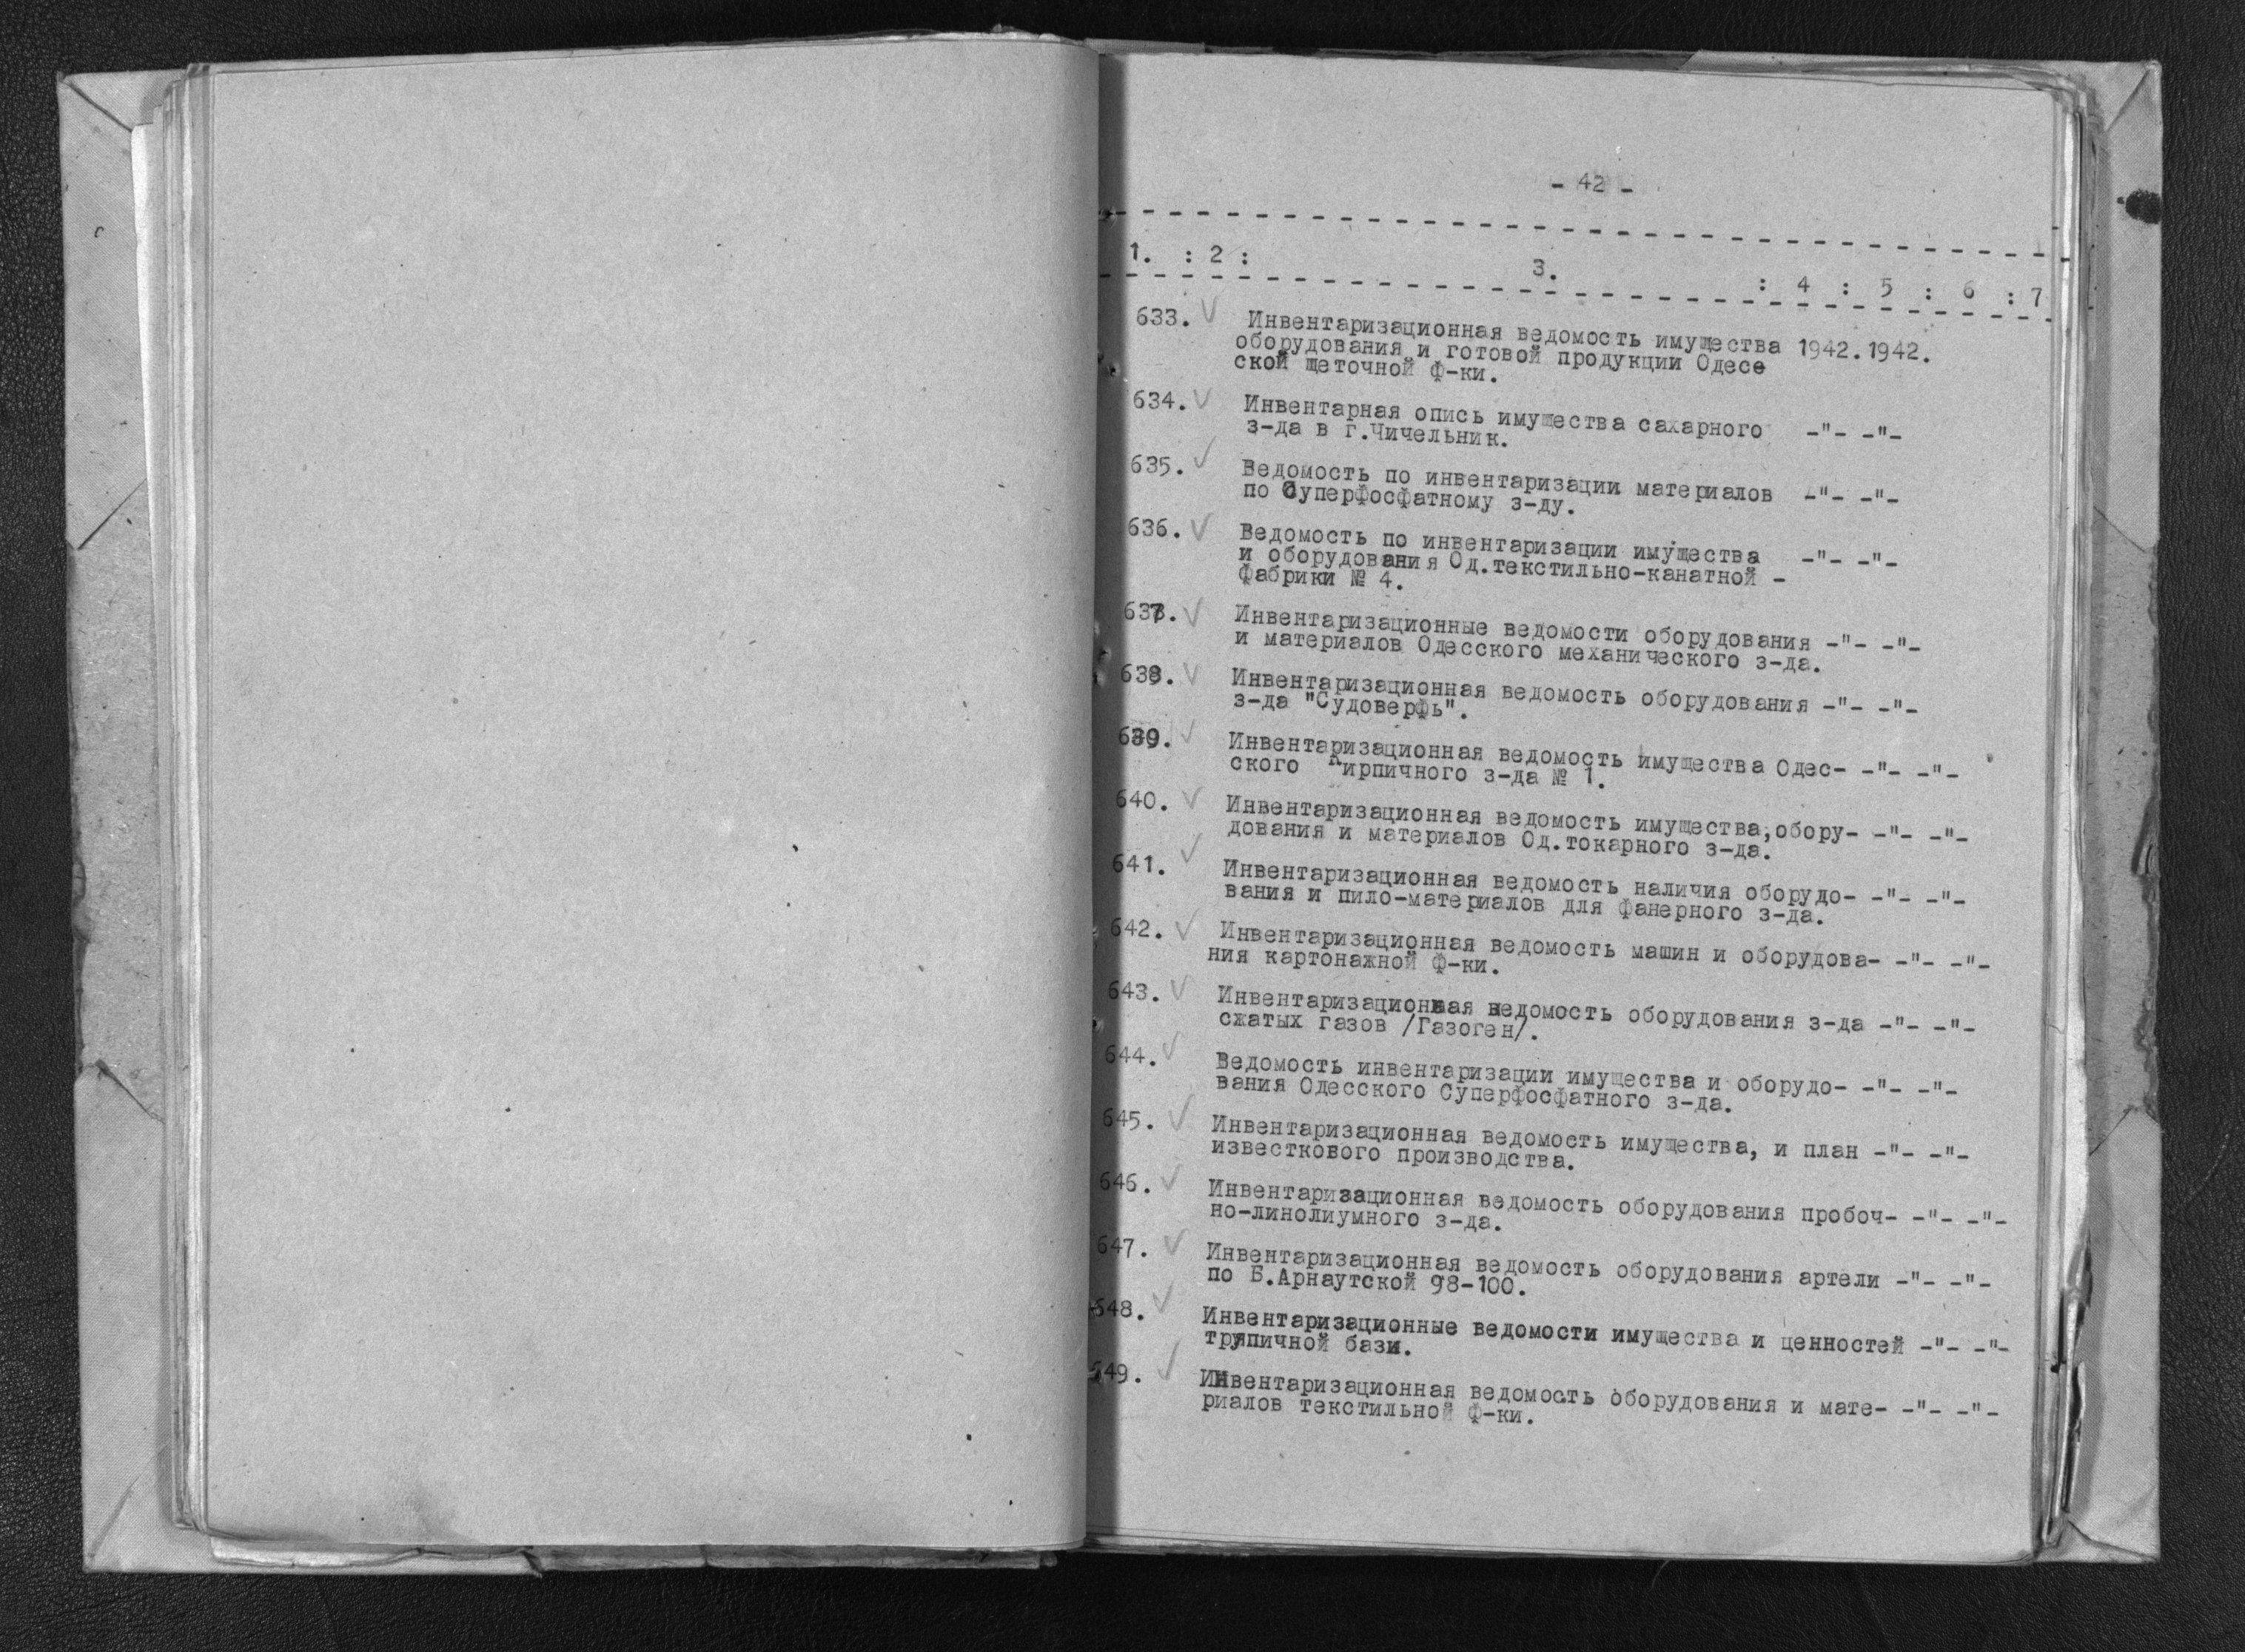 - 42 -
1. : 2 : 3. : 4 : 5 : 6 : 7
633. Инвентаризационная ведомость имущества 1942.1942.
оборудования и готовой продукции Одесс
ской щеточной ф-ки.
634. Инвентарная опись имущества сахарного -"- -"-
з-да в г.Чичельник.
635. Ведомость по инвентаризации материалов -"- -"-
по Суперфосфатному з-ду.
636. Ведомость по инвентаризации имущества -"- -"-
и оборудования Од.текстильно-канатной -
фабрики № 4.
637. Инвентаризационные ведомости оборудования -"- -"-
и материалов Одесского механического з-да.
638. Инвентаризационная ведомость оборудования -"- -"-
з-да "Судоверфь".
639. Инвентаризационная ведомость имущества Одес- -"- -"-
ского Кирпичного з-да № 1.
640. Инвентаризационная ведомость имущества,обору- -"- -"-
дования и материалов Од.токарного з-да.
641. Инвентаризационная ведомость наличия оборудо- -"- -"-
вания и пило-материалов для фанерного з-да.
642. Инвентаризационная ведомость машин и оборудова- -"- -"-
ния картонажной ф-ки.
643. Инвентаризационная ведомость оборудования з-да -"- -"-
сжатых газов /Газоген/.
644. Ведомость инвентаризации имущества и оборудо- -"- -"-
вания Одесского Суперфосфатного з-да.
645. Инвентаризационная ведомость имущества, и план -"- -"-
известкового производства.
646. Инвентаризационная ведомость оборудования пробоч- -"- -"-
но-линолиумного з-да.
647. Инвентаризационная ведомость оборудования артели -"- -"-
по Б.Арнаутской 98-100.
648. Инвентаризационные ведомости имущества и ценностей -"- -"-
тряпичной базы.
649. Инвентаризационная ведомость оборудования и мате- -"- -"-
риалов текстильной ф-ки.